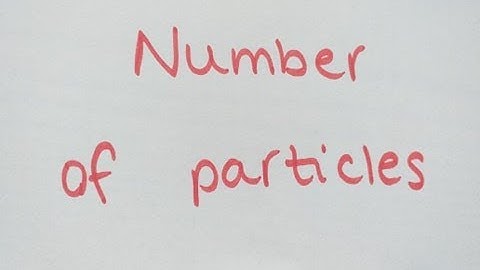 Number
of particles